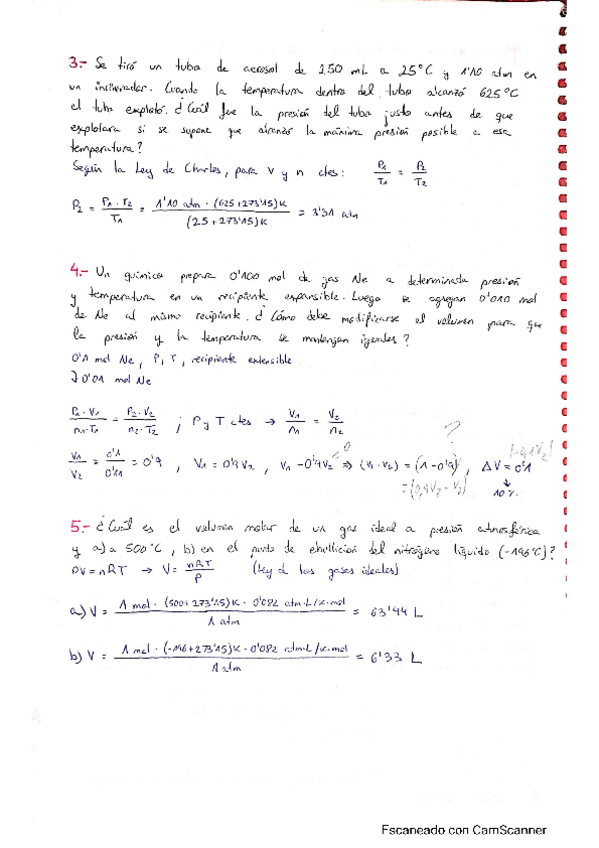 3.- Se tiró un tubo de aerosol de 250 mL a 25°C y 1'10 atm en
un incinerador. Cuando la temperatura dentro del tubo alcanzó 625°C
el tubo explotó. ¿Cuál fue la presión del tubo justo antes de que
explotara si se supone que alcanzó la máxima presión posible a esa
temperatura?
Según la Ley de Charles, para V y n ctes: P1/T1 = P2/T2
P2 = P1·T2/T1 = 1'10 atm · (625+273'15)K / (25+273'15)K = 3'31 atm
4.- Un químico prepara 0'100 mol de gas Ne a determinada presión
y temperatura en un recipiente expansible. Luego se agregan 0'010 mol
de Ne al mismo recipiente. ¿Cómo debe modificarse el volumen para que
la presión y la temperatura se mantengan iguales?
0'1 mol Ne, P, T, recipiente extensible
0'01 mol Ne
P1·V1/n1·T1 = P2·V2/n2·T2 ; P y T ctes → V1/n1 = V2/n2
?
V1/V2 = 0'1/0'11 = 0'9 , V1 = 0'9V2 , V1 - 0'9V2 = 0 ⇒ (V1-V2) = (1-0'9) , ΔV = 0'1
= (0,9V2 - V2)
10%
5.- ¿Cuál es el volumen molar de un gas ideal a presión atmosférica
y a) a 500°C, b) en el punto de ebullición del nitrógeno líquido (-196°C)?
PV = nRT → V = nRT/P (Ley de los gases ideales)
a) V = 1 mol · (500+273'15)K · 0'082 atm·L/K·mol / 1 atm = 63'44 L
b) V = 1 mol · (-196+273'15)K · 0'082 atm·L/K·mol / 1 atm = 6'33 L
Escaneado con CamScanner